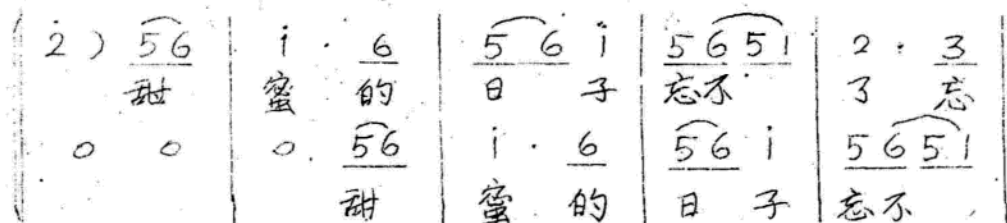 2̇ ) 5 6 | i · 6 | 5 6 i | 5 6 5 1 | 2 · 3
甜 蜜 的 日 子 忘不 了 忘
0 0 | 0 5 6 | i · 6 | 5 6 i | 5 6 5 1
甜 蜜 的 日 子 忘不